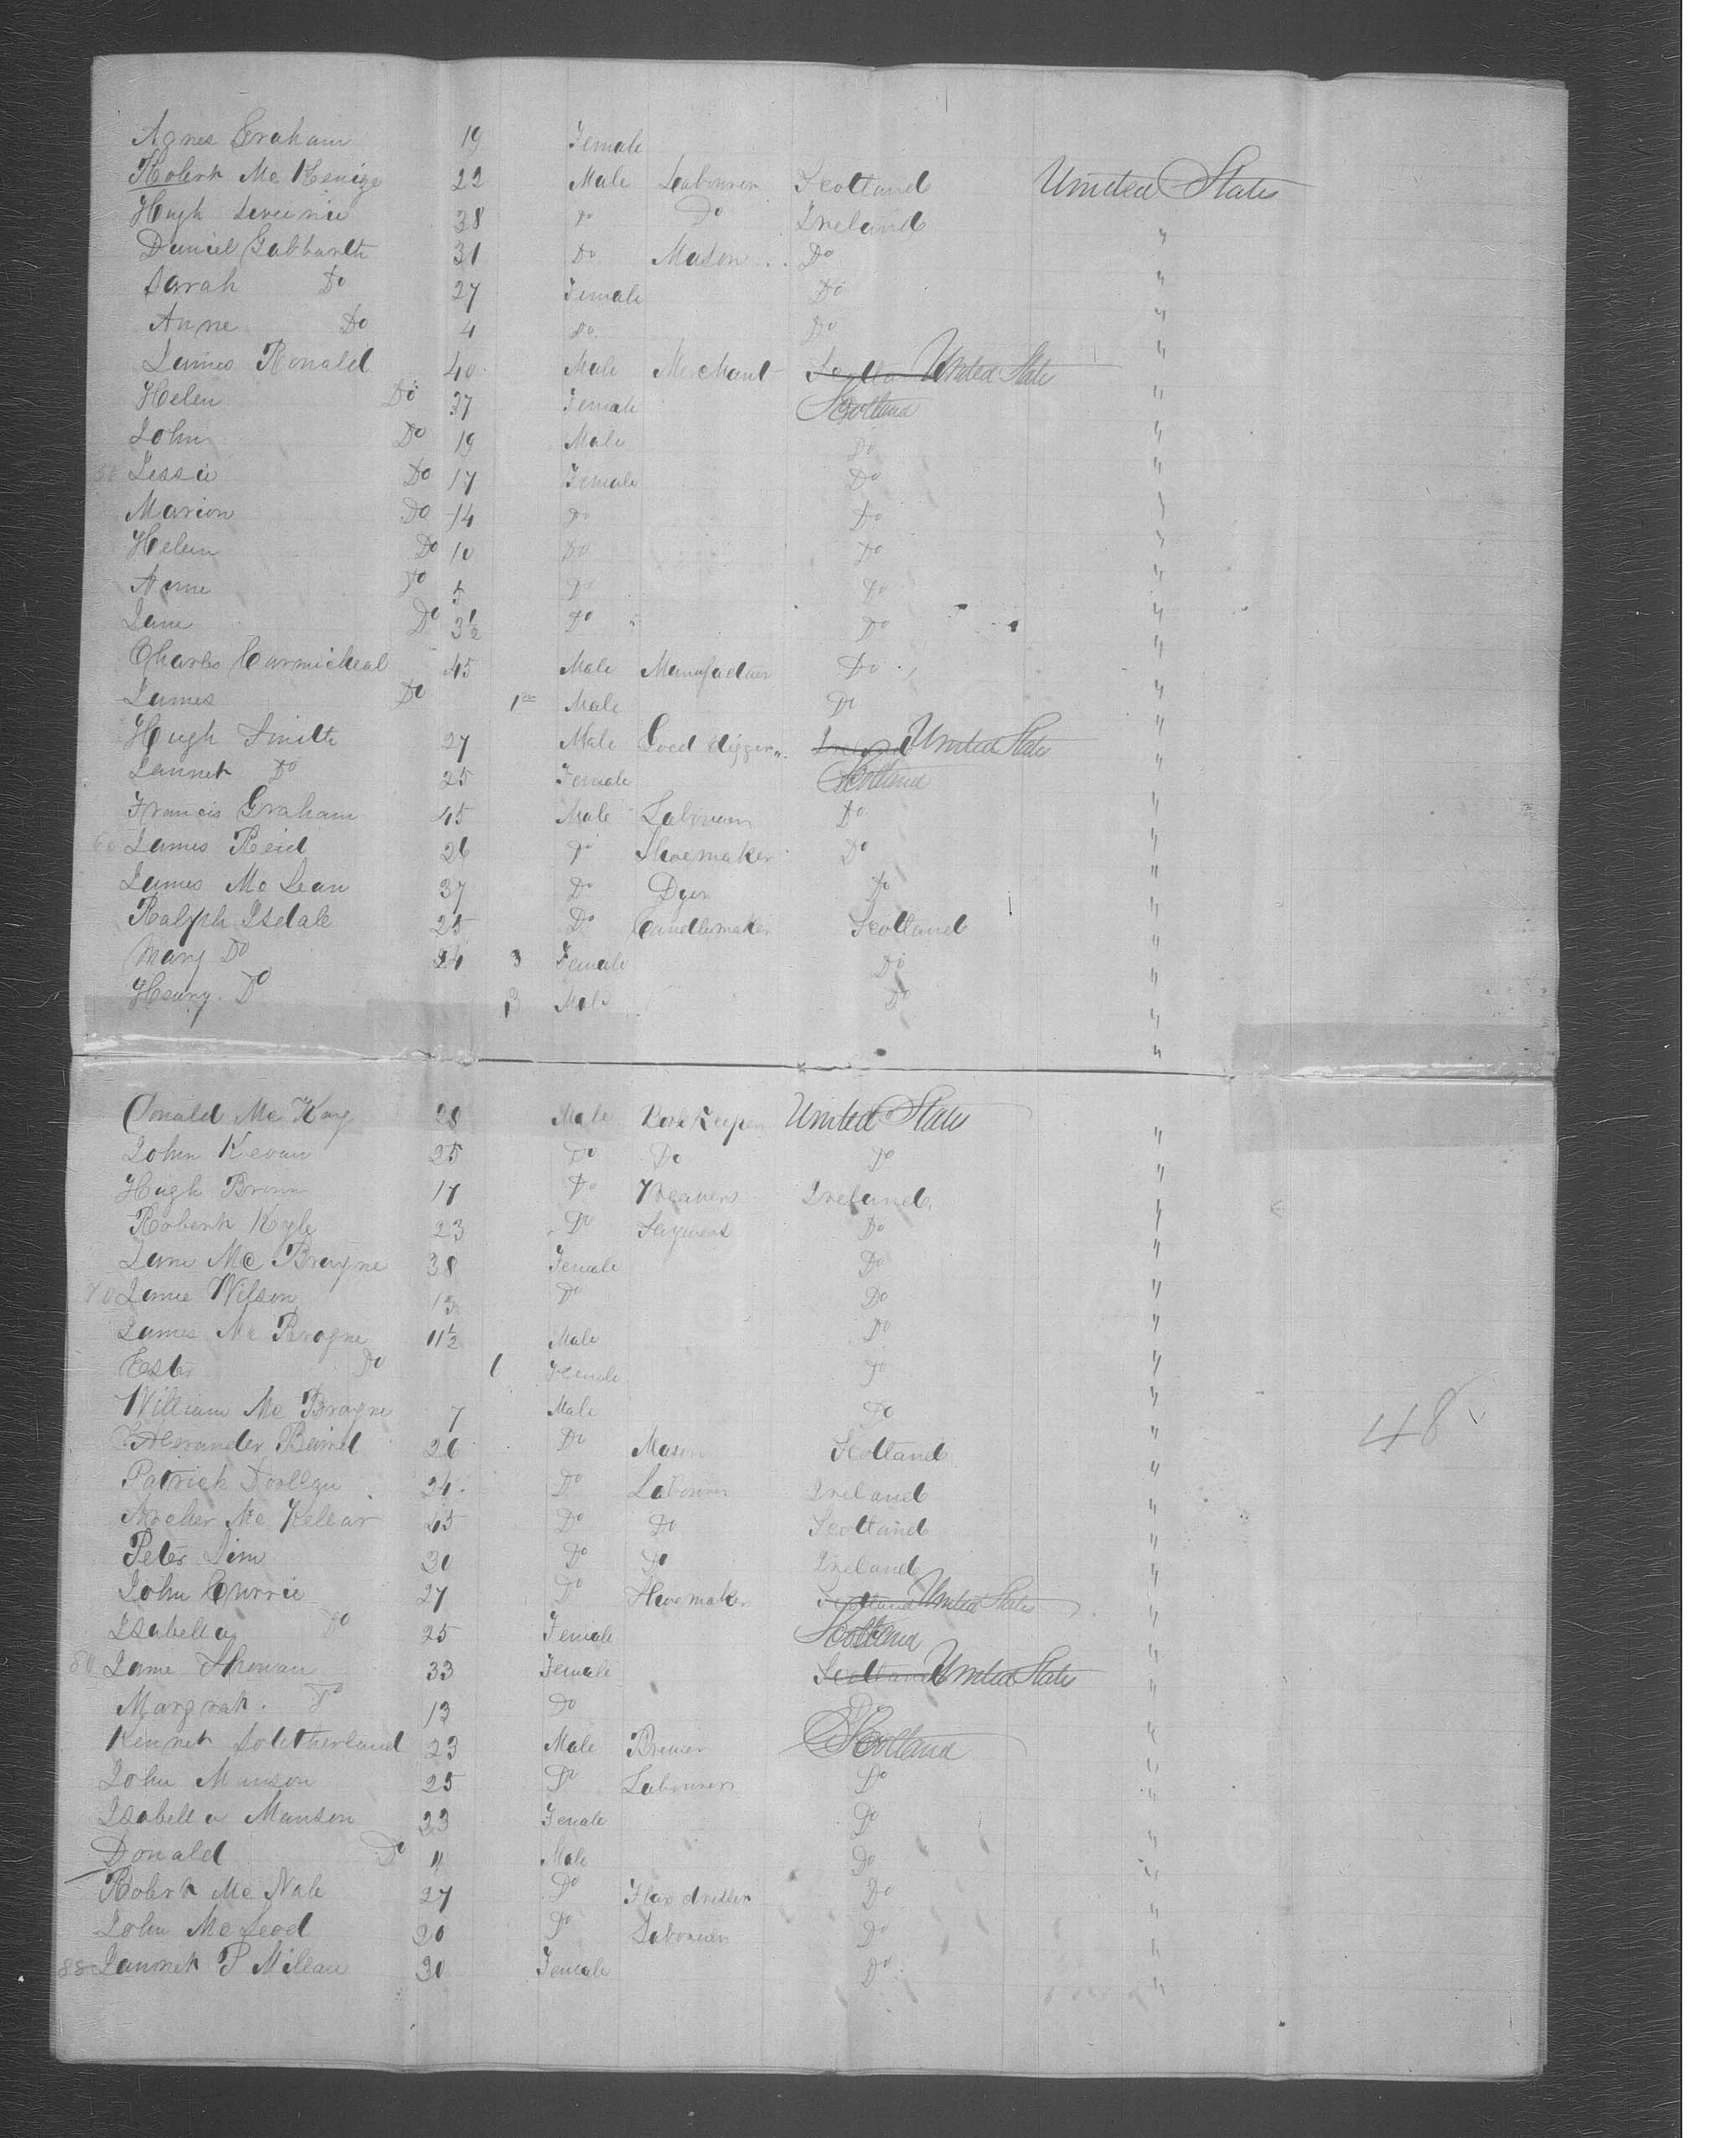 Agnes Graham 19 Female
Robert Mc Kenizo 22 Male Labourer Scotland United States
Hugh 38 Do Do Ireland "
Daniel Galbharth 31 Do Mason Do "
Sarah Do 27 Female Do "
Anne Do 4 Do Do "
James Ronald 40 Male Merchant Scotland United State "
Helen Do 37 Female Scotland "
John Do 19 Male Do "
Jessie Do 17 Female Do "
Marion Do 14 Do Do "
Helen Do 10 Do Do "
Anne Do 5 Do Do "
Jane Do 3½ Do Do "
Charles Carmicheal 45 Male Manufactuer Do "
James Do 1 Male Do "
Hugh Smith 27 Male digger Ireland United State "
Jannet Do 25 Female Scotland "
Francis Graham 45 Male Labourer Do "
60 James Reid 26 Do Shoemaker Do "
James Mc Lean 37 Do Dyer Do "
Ralph Isdale 25 Do Candlemaker Scotland "
Mary Do 24 3 Female Do "
Henry Do 3 Male Do "
Donald Mc Kay 28 Male Bookkeeper United States "
John Kevan 25 Do Do Do "
Hugh Brown 17 Do Weavers Ireland "
Robert Kyle 23 Do Do "
Jane Mc Brayne 38 Female Do "
70 Jane Wilson 13 Do Do "
James Mc Brayne 11½ Male Do "
Ester Do 6 Female Do "
William Mc Brayne 7 Male Do "
Alexander Baird 26 Do Mason Scotland " 48
Patrick 24 Do Labourer Ireland "
Archer Mc Kellar 45 Do Do Scotland "
Peter Sim 30 Do Do Ireland "
John Currie 27 Do Shoemaker Scotland United States "
Isabella Do 25 Female Scotland "
80 Jame Thowan 33 Female Scotland United State "
Margrat Do 13 Do Do "
Kennet Southerland 23 Male Brewer Scotland "
John Manson 25 Do Labourer Do "
Isabella Manson 23 Female Do "
Donald Do 11 Male Do "
Robert Mc Nab 27 Do Flax dresser Do "
John Mc Leod 30 Do Labourer Do "
88 Jannet P Millan 30 Female Do "